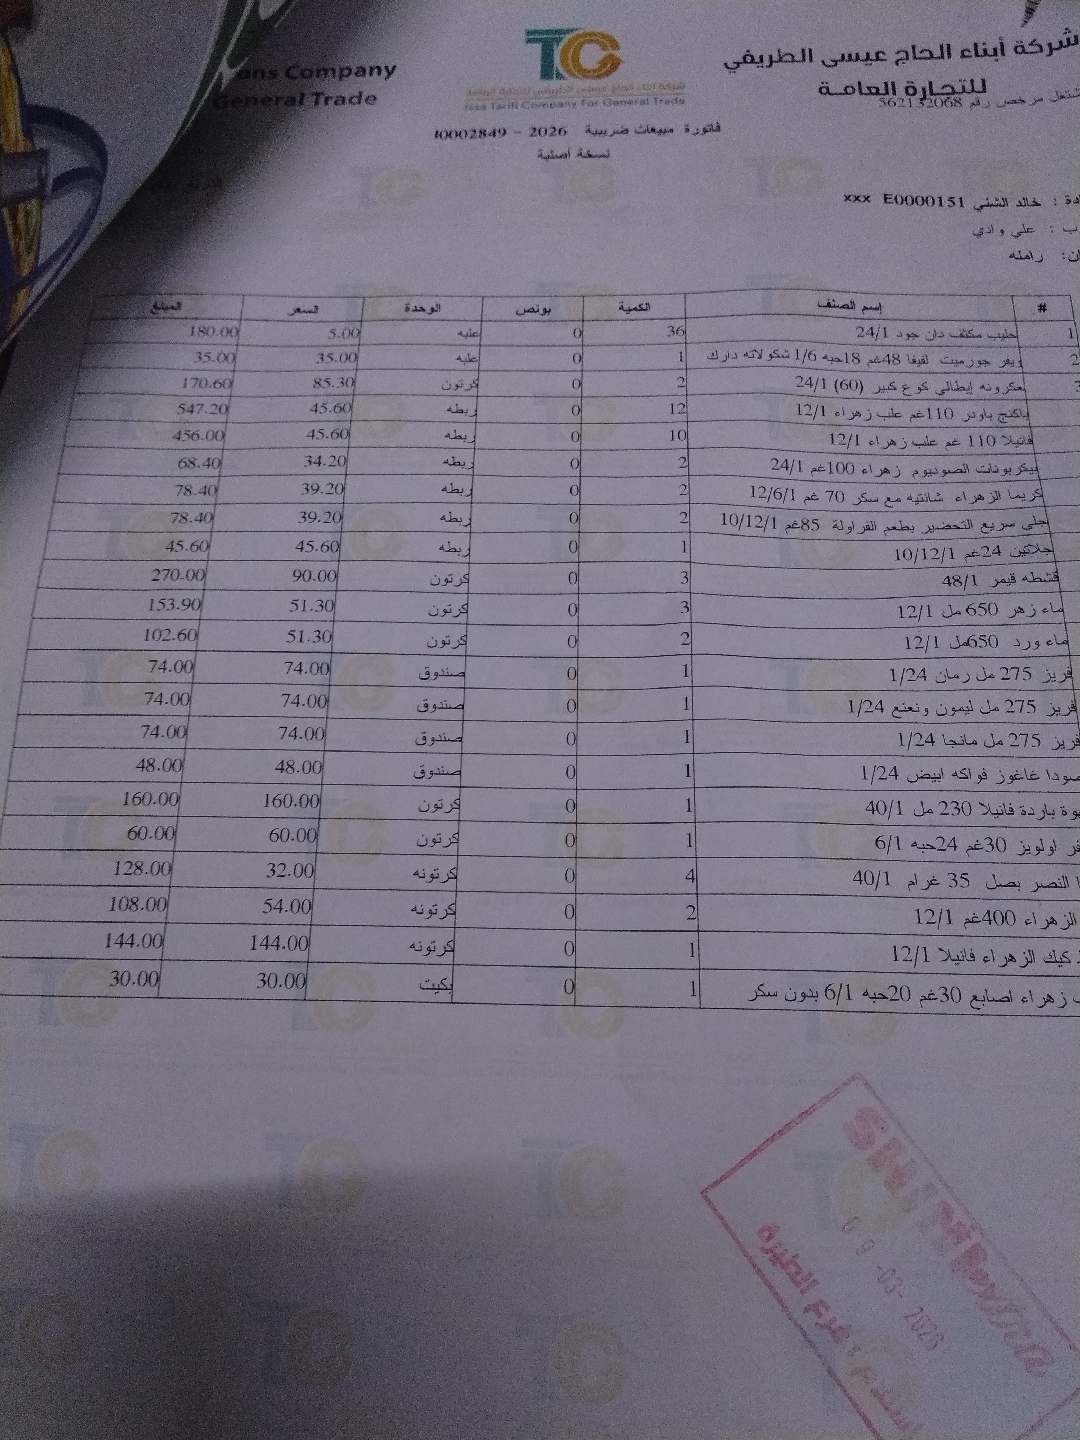 شركة أبناء الحاج عيسى الطريفي
للتجارة العامة
شتغل مرخص رقم 562132068
TC
شركة ابناء الحاج عيسى الطريفي للتجارة العامة
Issa Tarifi Company For General Trade
ans Company
General Trade
فاتورة مبيعات ضريبية 2026 - I0002849
نسخة أصلية
دة : خالد الشني xxx E0000151
ب : علي وادي
ان: رامله
# إسم الصنف الكمية بونص الوحدة السعر المبلغ
1 حليب مكثف دان جود 24/1 36 0 علبه 5.00 180.00
2 ويفر جورميت لفيفا 48غم 18حبه 1/6 شكولاته دارك 1 0 علبه 35.00 35.00
3 معكرونه إيطالي كوع كبير (60) 24/1 2 0 كرتون 85.30 170.60
باكنج باودر 110غم علب زهراء 12/1 12 0 ربطه 45.60 547.20
فانيلا 110 غم علب زهراء 12/1 10 0 ربطه 45.60 456.00
بيكربونات الصوديوم زهراء 100غم 24/1 2 0 ربطه 34.20 68.40
كريما الزهراء شانتيه مع سكر 70 غم 12/6/1 2 0 ربطه 39.20 78.40
جلي سريع التحضير بطعم الفراولة 85غم 10/12/1 2 0 ربطه 39.20 78.40
جلاتين 24غم 10/12/1 1 0 ربطه 45.60 45.60
قشطه قيمر 48/1 3 0 كرتون 90.00 270.00
ماء زهر 650 مل 12/1 3 0 كرتون 51.30 153.90
ماء ورد 650مل 12/1 2 0 كرتون 51.30 102.60
فريز 275 مل رمان 1/24 1 0 صندوق 74.00 74.00
فريز 275 مل ليمون ونعنع 1/24 1 0 صندوق 74.00 74.00
فريز 275 مل مانجا 1/24 1 0 صندوق 74.00 74.00
صودا غاغوز فواكه ابيض 1/24 1 0 صندوق 48.00 48.00
وة باردة فانيلا 230 مل 40/1 1 0 كرتون 160.00 160.00
فر اولويز 30غم 24حبه 6/1 1 0 كرتون 60.00 60.00
ا النصر بصل 35 غرام 40/1 4 0 كرتونه 32.00 128.00
الزهراء 400غم 12/1 2 0 كرتونه 54.00 108.00
كيك الزهراء فانيلا 12/1 1 0 كرتونه 144.00 144.00
ب زهراء اصابع 30غم 20حبه 6/1 بدون سكر 1 0 بكيت 30.00 30.00
09 -03- 2026
فرع الطيرة